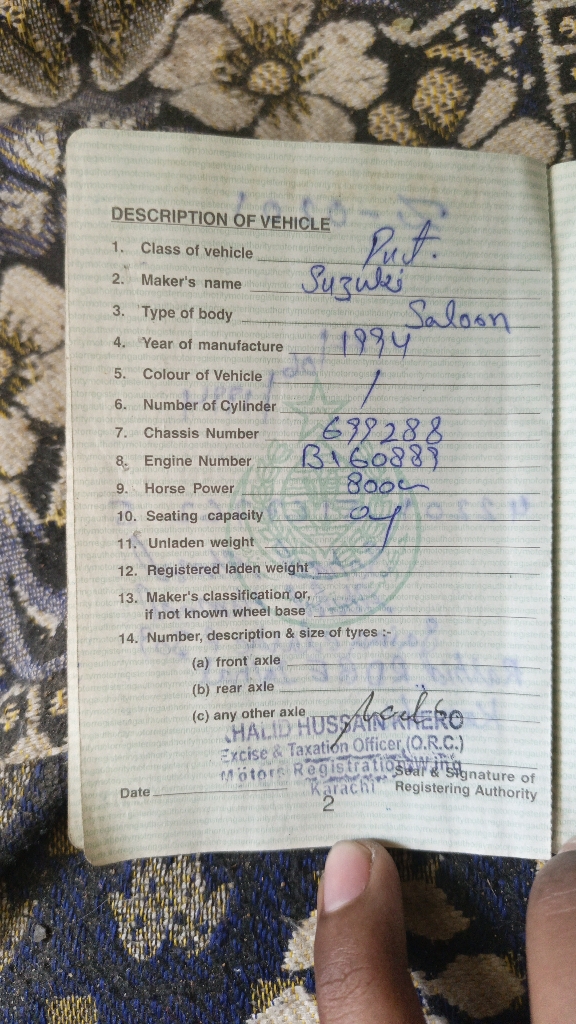 DESCRIPTION OF VEHICLE
1. Class of vehicle Pvt.
2. Maker's name Suzuki
3. Type of body Saloon
4. Year of manufacture 1994
5. Colour of Vehicle /
6. Number of Cylinder
7. Chassis Number 699288
8. Engine Number B160889
9. Horse Power 800cc
10. Seating capacity 04
11. Unladen weight
12. Registered laden weight
13. Maker's classification or,
if not known wheel base
14. Number, description & size of tyres :-
(a) front axle
(b) rear axle
(c) any other axle
KHALID HUSSAIN KHERO
Excise & Taxation Officer (O.R.C.)
Motors Registration Wing
Karachi
Seal & Signature of
Date Registering Authority
2